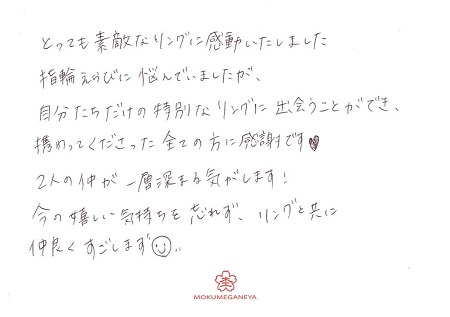 とっても素敵なリングに感動いたしました
指輪えらびに悩んでいましたが、
自分たちだけの特別なリングに出会うことができ、
携わってくださった全ての方に感謝です♥
2人の仲が一層深まる気がします!
今の嬉しい気持ちを忘れず、リングと共に
仲良くすごします☺..
MOKUMEGANEYA